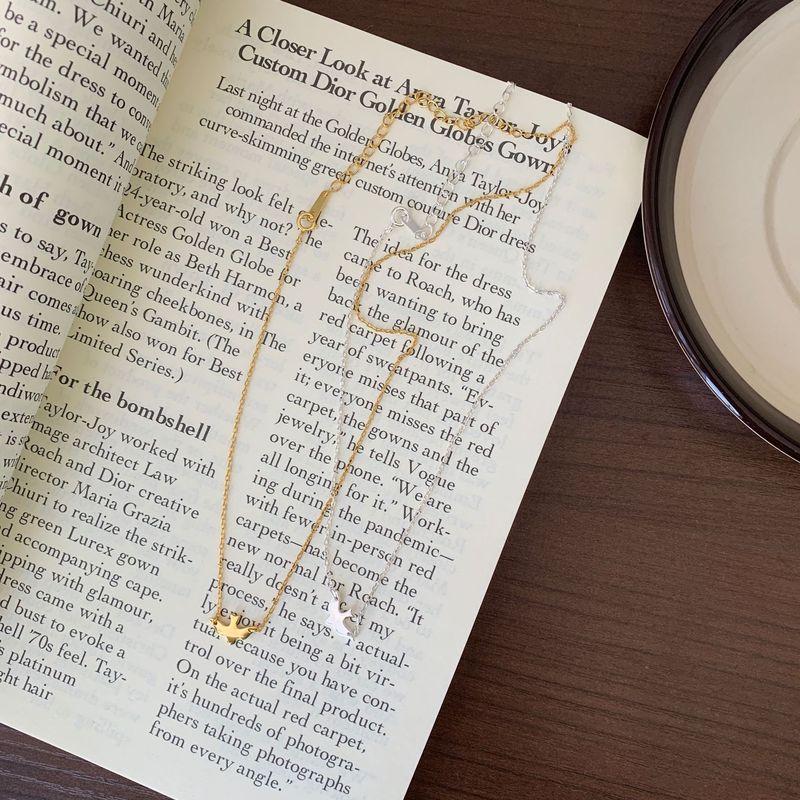 Chiuri and
be a special momen
for the dress to con
mbolism that we c
much about." And
ecial moment i
h of gown
s to say, Tay
embrace of
air comes a
us time.
product
y had
ndiwor
exter
t is s
A Closer Look at Anya Taylor-Joy's
Custom Dior Golden Globes Gown
Last night at the Golden Globes, Anya Taylor-Joy
commanded the internet's attention with her
curve-skimming green custom couture Dior dress
The striking look felt
oratory, and why not? The
24-year-old won a Best
Actress Golden Globe for
her role as Beth Harmon, a
chess wunderkind with
oaring cheekbones, in The
Queen's Gambit. (The
how also won for Best
Limited Series.)
For the bombshell
aylor-Joy worked with
mage architect Law
oach and Dior creative
irector Maria Grazia
Chiuri to realize the strik-
ng green Lurex gown
nd accompanying cape.
ipping with glamour,
dress came with a
d bust to evoke a
hell '70s feel. Tay-
s platinum
ght hair
The idea for the dress
came to Roach, who has
been wanting to bring
back the glamour of the
red carpet following a
year of sweatpants. "Ev-
eryone misses that part of
it; everyone misses the red
carpet, the gowns and the
jewelry," he tells Vogue
over the phone. "We are
all longing for it." Work-
ing during the pandemic—
with fewer in-person red
carpets—has become the
new normal for Roach. "It
really doesn't my
process," he says. "I actual-
ly enjoy it being a bit vir-
tual because you have con-
trol over the final product.
On the actual red carpet,
it's hundreds of photogra-
phers taking photographs
from every angle."